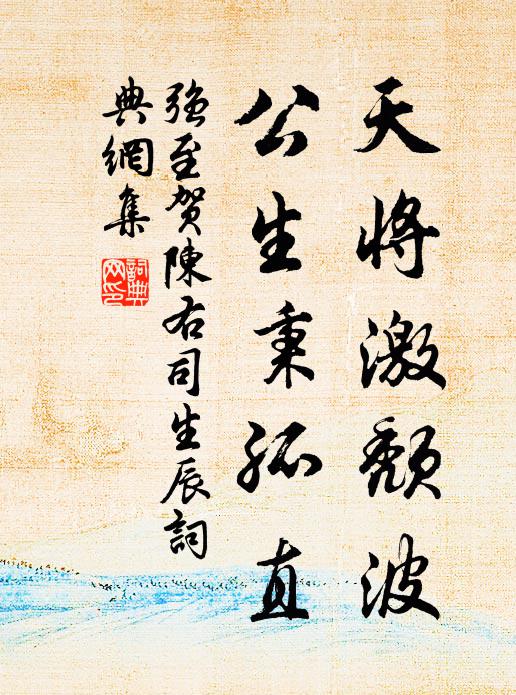 天將激頹波
公生秉孤直
強至賀陳右司生辰詞
典網集
詞典
网印